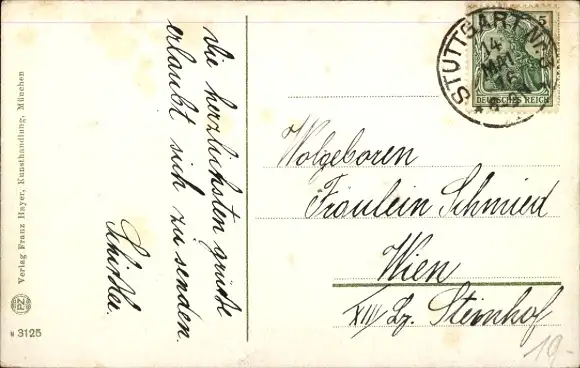 die herzlichsten grüße
erlaubt sich zu senden.
Wolgeboren
Fräulein Schmied
Wien
XIII/ Lz. Steinhof
STUTTGART No. 
14
MAI
5
DEUTSCHES REICH
Verlag Franz Hayer, Kunsthandlung, München
N 3125
19-